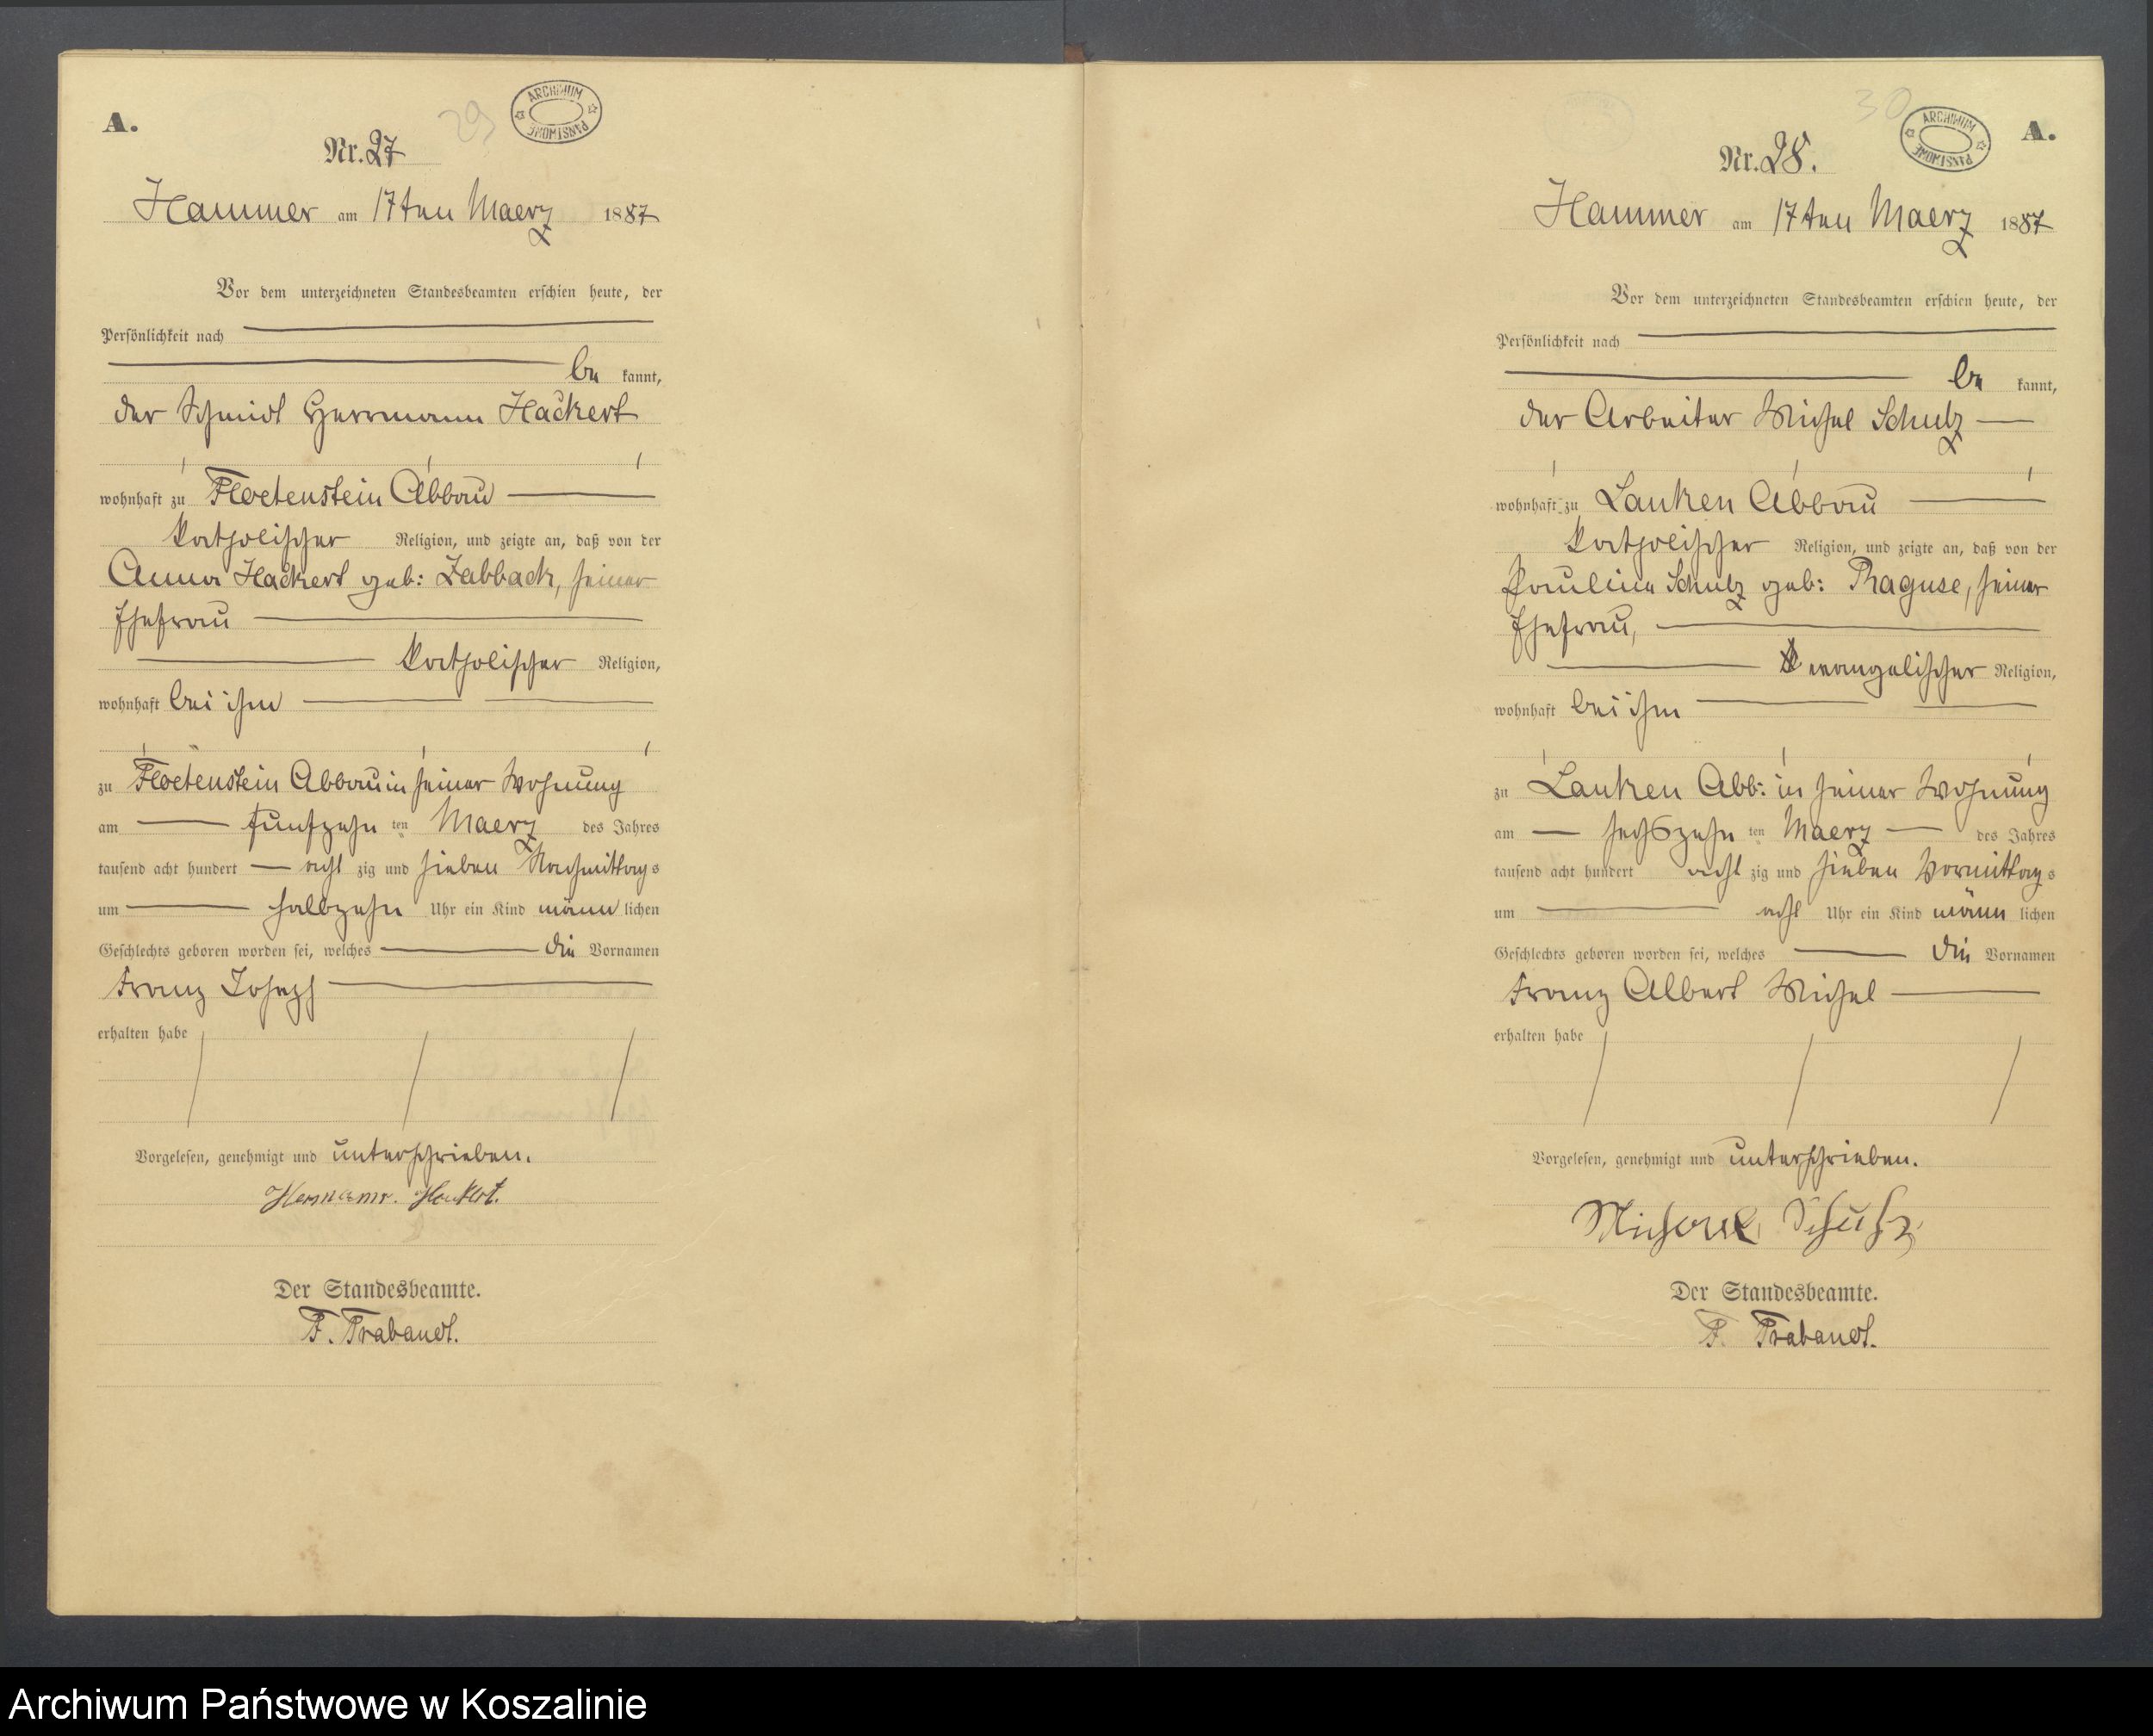 A.
29
ARCHIWUM PAŃSTWOWE
Nr. 27
Hammer am 17ten Maerz 1887
Vor dem unterzeichneten Standesbeamten erschien heute, der
Persönlichkeit nach
be kannt,
der Schmidt Herrmann Hackert
wohnhaft zu Floetenstein Abbau
katholischer Religion, und zeigte an, daß von der
Anna Hackert geb: Zabback, seiner
Ehefrau
katholischer Religion,
wohnhaft bei ihm
zu Floetenstein Abbau in seiner Wohnung
am fünfzehn ten Maerz des Jahres
tausend acht hundert acht zig und sieben Nachmittags
um halbzehn Uhr ein Kind männ lichen
Geschlechts geboren worden sei, welches die Vornamen
Franz Joseph
erhalten habe
Vorgelesen, genehmigt und unterschrieben.
Hermann. Hackert.
Der Standesbeamte.
F. Trabandt.
30
ARCHIWUM PAŃSTWOWE
A.
Nr. 28.
Hammer am 17ten Maerz 1887
Vor dem unterzeichneten Standesbeamten erschien heute, der
Persönlichkeit nach
be kannt,
der Arbeiter Michel Schulz
wohnhaft zu Lanken Abbau
katholischer Religion, und zeigte an, daß von der
Pauline Schulz geb: Raguse, seiner
Ehefrau,
evangelischer Religion,
wohnhaft bei ihm
zu Lanken Abb: in seiner Wohnung
am sechszehn ten Maerz des Jahres
tausend acht hundert acht zig und sieben Vormittags
um acht Uhr ein Kind männ lichen
Geschlechts geboren worden sei, welches die Vornamen
Franz Albert Michel
erhalten habe
Vorgelesen, genehmigt und unterschrieben.
Michael Schulz
Der Standesbeamte.
F. Trabandt.
Archiwum Państwowe w Koszalinie